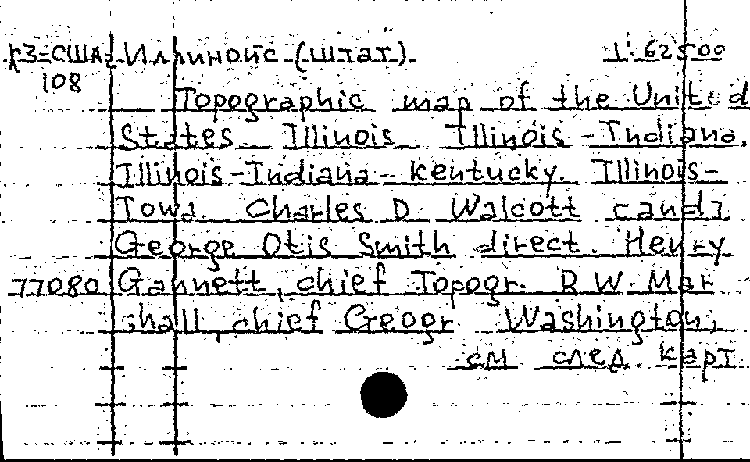 К3-США Иллинойс (штат). 1:62500
108
Topographic map of the United
States Illinois Illinois-Indiana.
Illinois-Indiana-Kentucky. Illinois-
Iowa. Charles D Walcott
George Otis Smith direct. Henry
77080 Gannett, chief Topogr. R.W. Mar
shall, chief Geogr Washington,
см след. карт